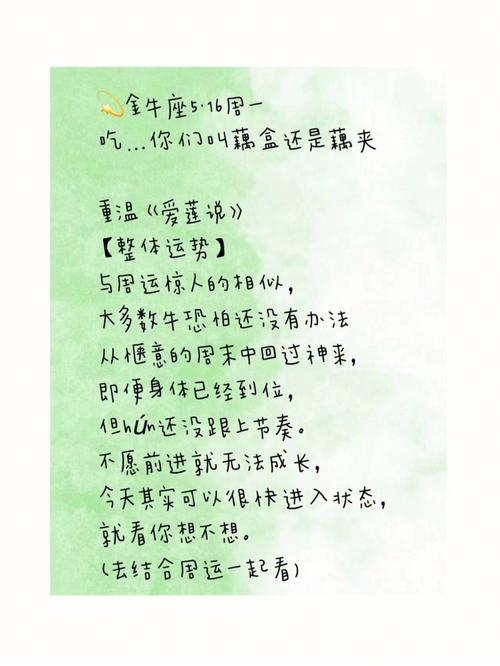 💫金牛座5·16周一
吃...你们叫藕盒还是藕夹
重温《爱莲说》
【整体运势】
与周运惊人的相似，
大多数牛恐怕还没有办法
从惬意的周末中回过神来，
即便身体已经到位，
但hún还没跟上节奏。
不愿前进就无法成长，
今天其实可以很快进入状态，
就看你想不想。
(去结合周运一起看)